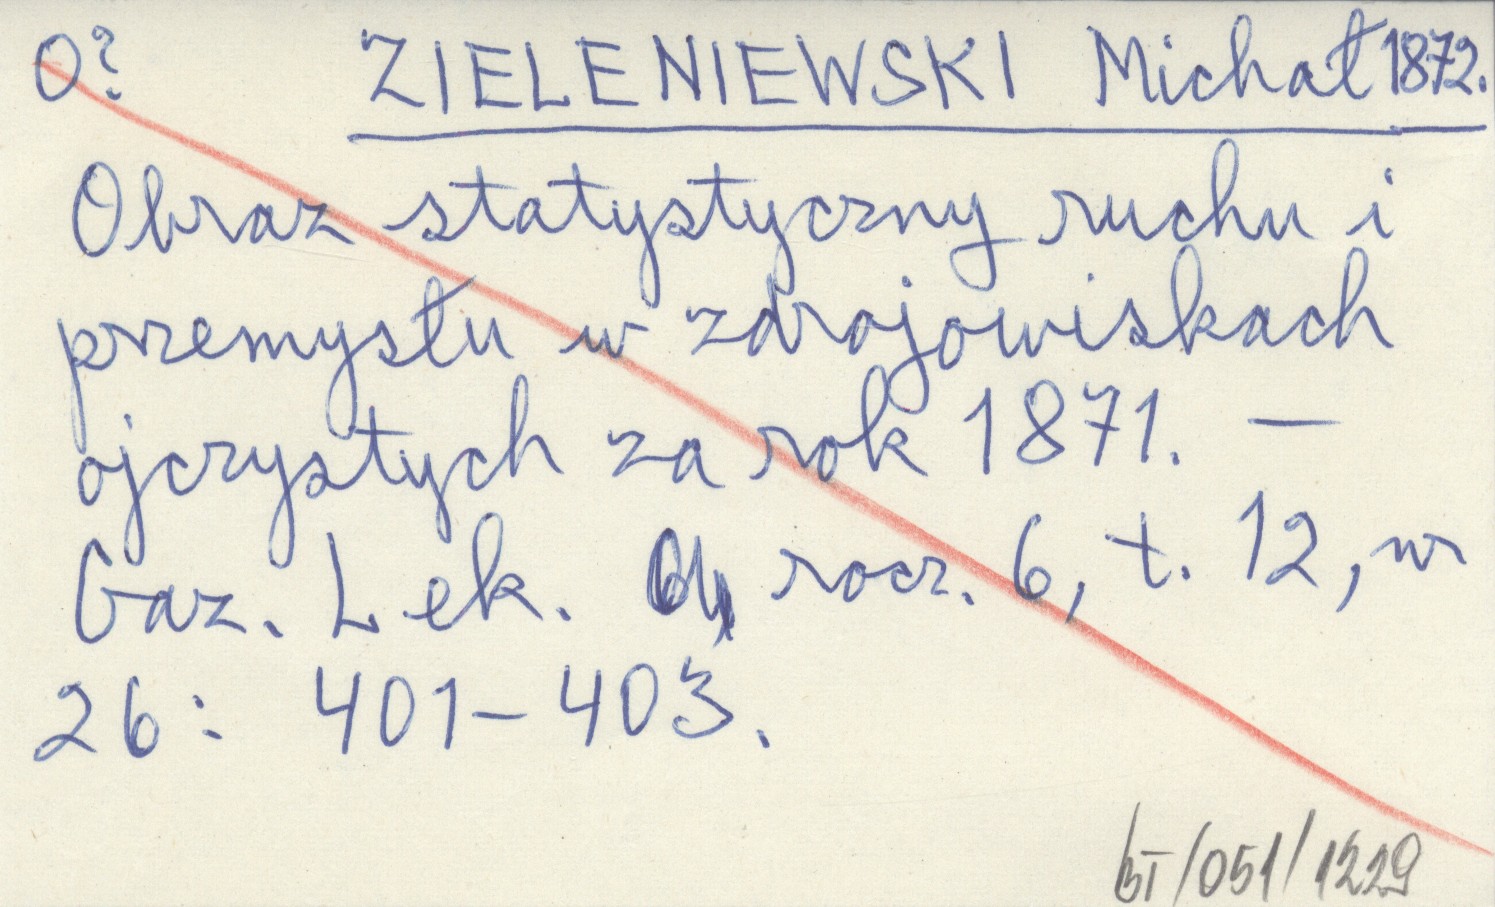 O? ZIELENIEWSKI Michał 1872.
Obraz statystyczny ruchu i
przemysłu w zdrojowiskach
ojczystych za rok 1871. —
Gaz. Lek. rocz. 6, t. 12, nr
26: 401-403.
BI/051/1229